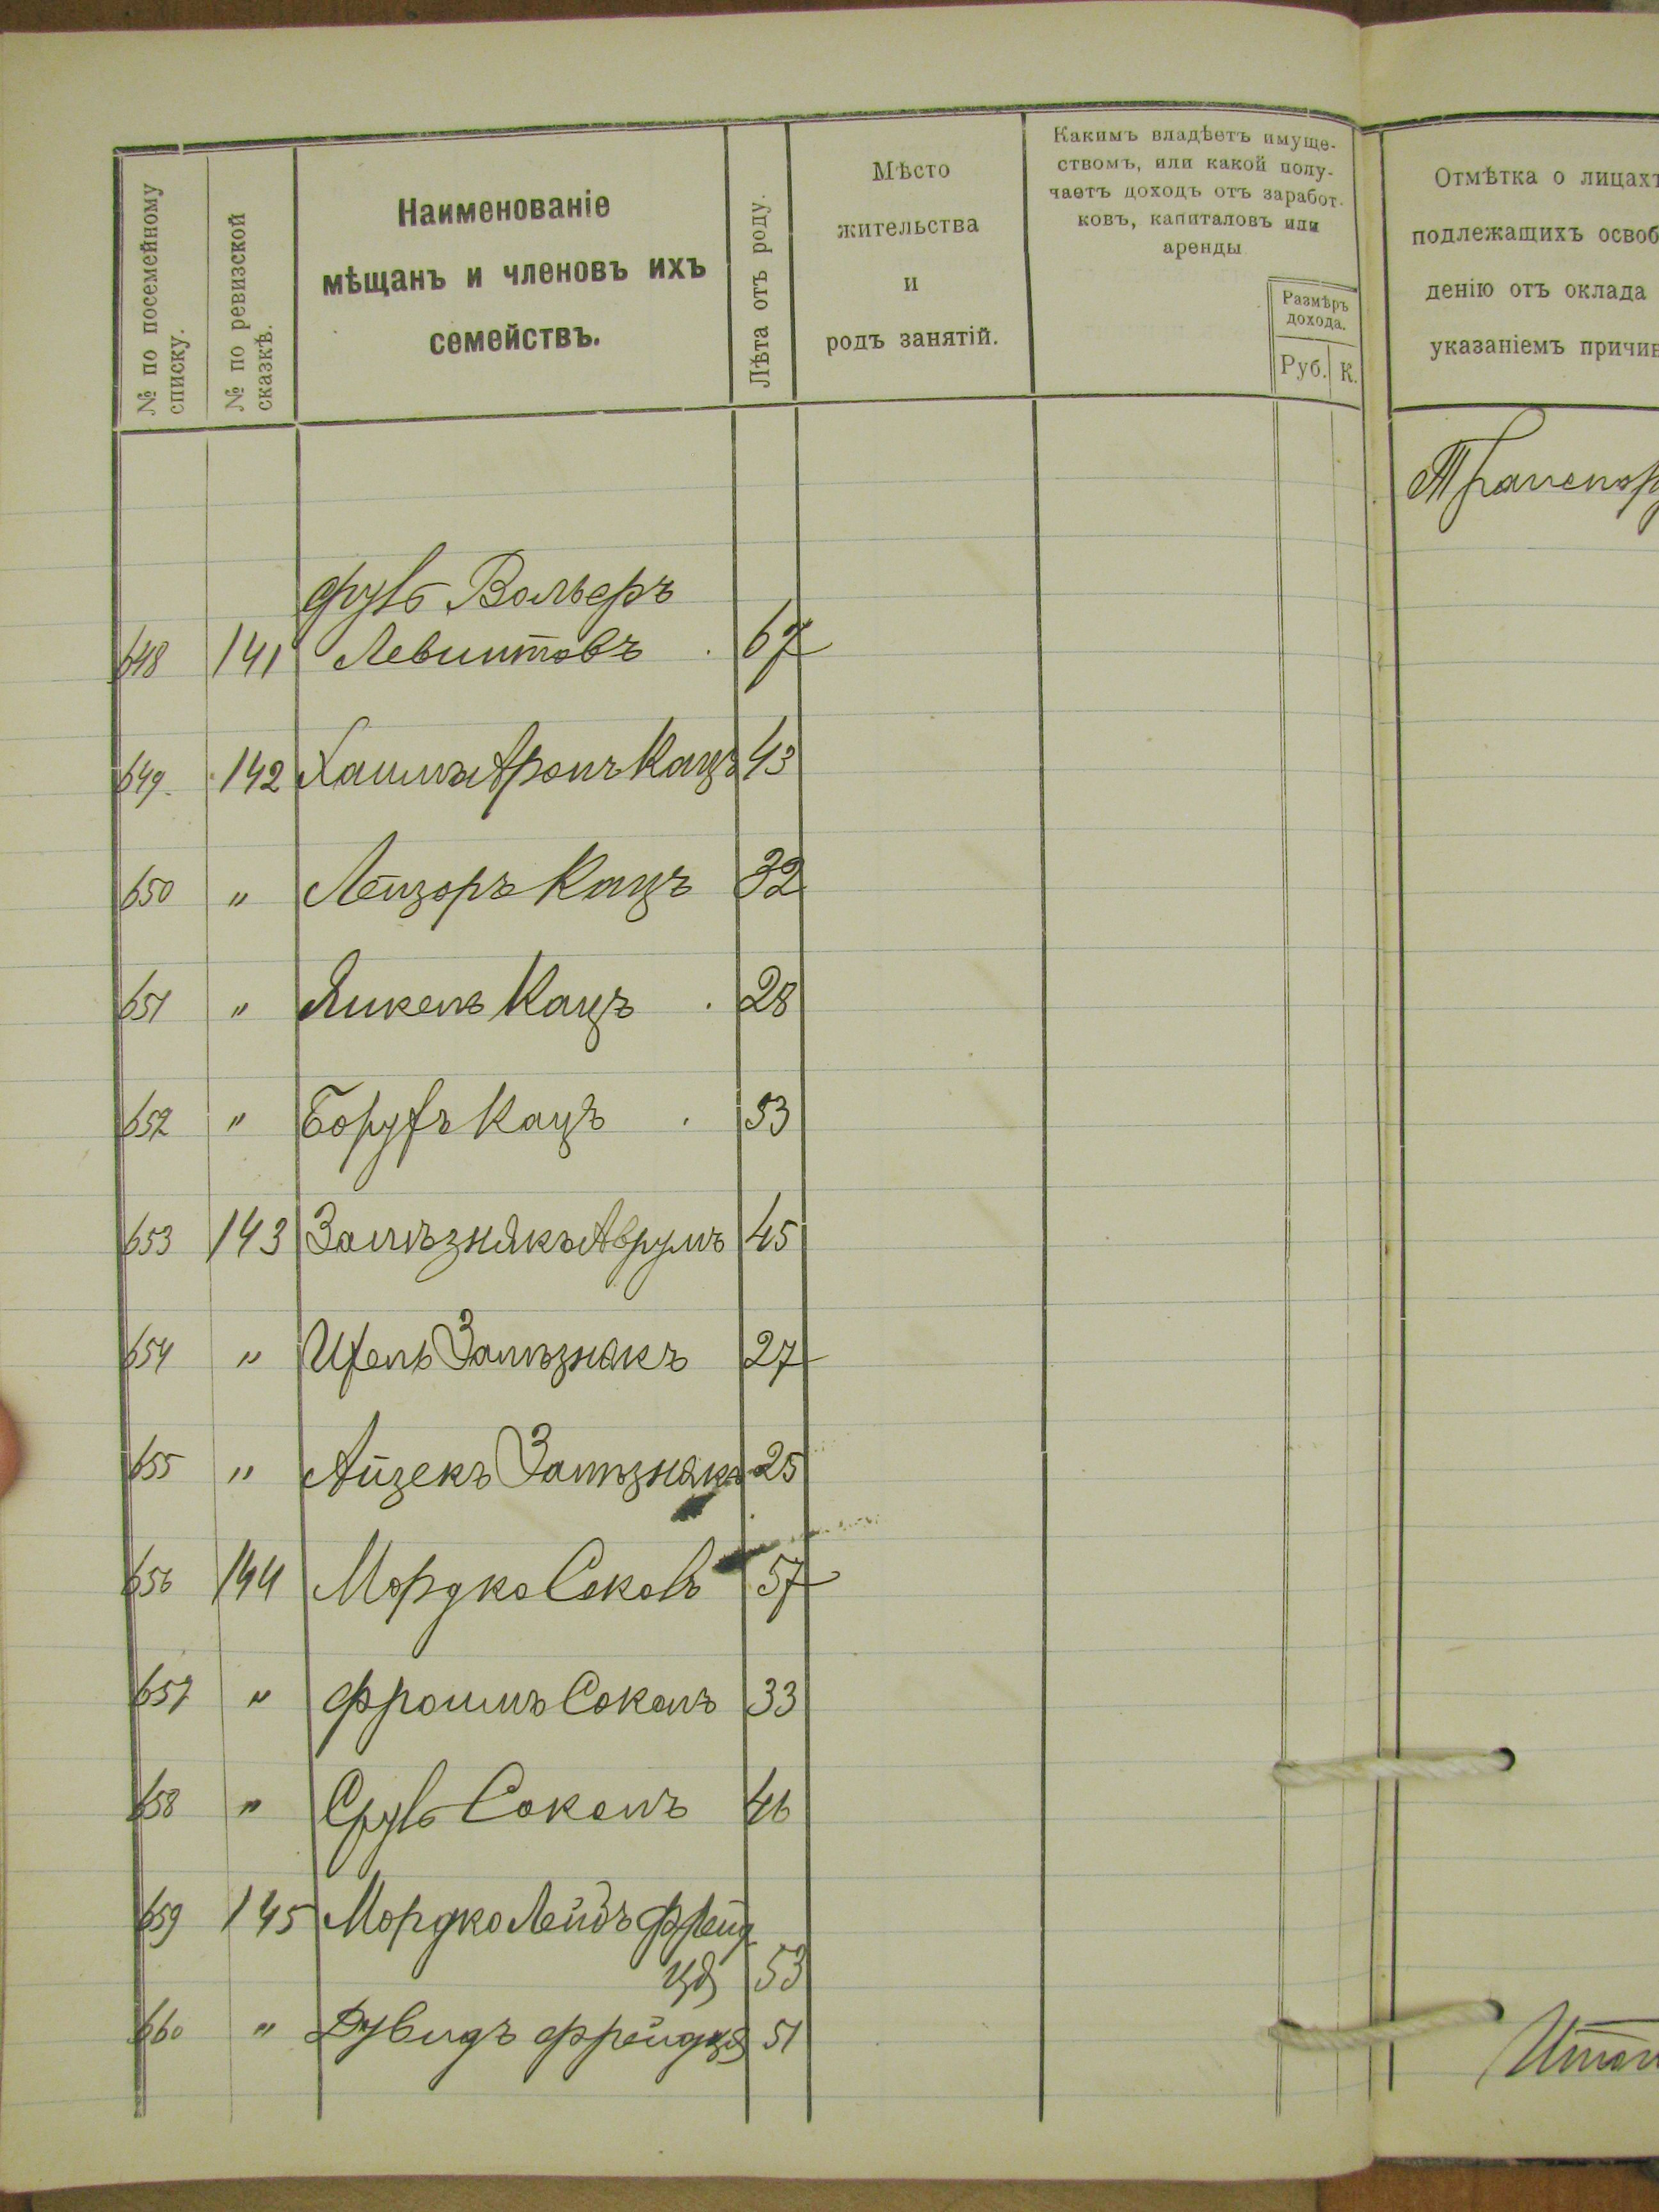 № по посемейному
списку.
№ по ревизской
сказкѣ.
Наименованіе
мѣщанъ и членовъ ихъ
семействъ.
Лѣта отъ роду.
Мѣсто
жительства
и
родъ занятій.
Какимъ владѣетъ имуще-
ствомъ, или какой полу-
чаетъ доходъ отъ заработ-
ковъ, капиталовъ или
аренды
Размѣръ
дохода.
Руб. К.
Отмѣтка о лицахъ
подлежащихъ освоб
денію отъ оклада
указаніемъ причин
Транспор
648 141 Левинтовъ 67
649 142 Хаимъ Аронъ Кацъ 43
650 " Лейзоръ Кацъ 32
651 " Янкель Кацъ 28
652 " Борухъ Кацъ 53
653 143 Залѣзнякъ Аврумъ 45
654 " Ихель Залѣзнякъ 27
655 " Айзекъ Залѣзнякъ 25
656 144 Мордко Соколъ 57
657 " Фроимъ Соколъ 33
658 " Сруль Соколъ 46
659 145 Мордко Лейбъ Фрейд
53
660 " Дувидъ 51
Итого